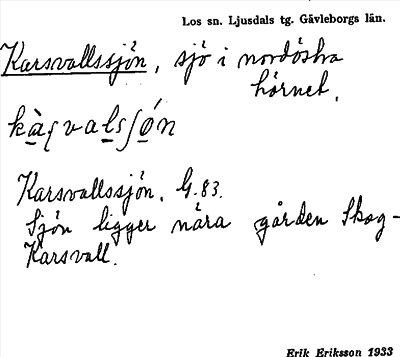 Los sn. Ljusdals tg. Gävleborgs län.
Karsvallssjön, sjö i nordöstra
hörnet.
kàʂvalsʃón
Karsvallssjön. G.83.
Sjön ligger nära gården Skog-
Karsvall.
Erik Eriksson 1933